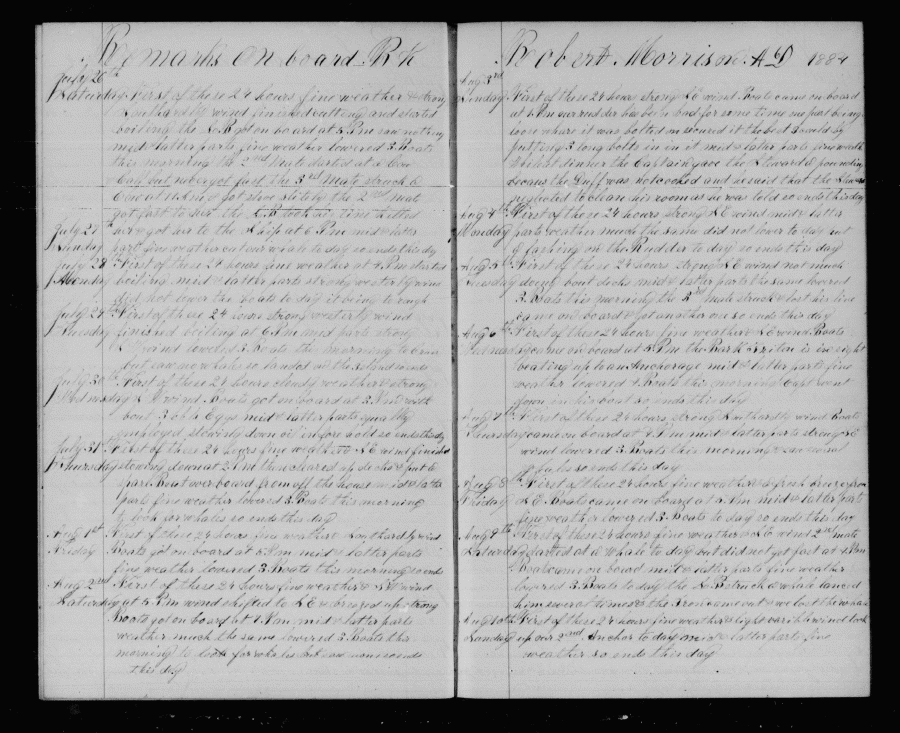 Remarks on board Bk
July 26th
Saturday First of these 24 hours fine weather & strong
wind finished cutting and started
boiling the Boats got on board at 5 Pm saw nothing
mid & latter parts fine weather lowered 3 Boats
this morning the 2nd Mate started at a Cow
& Calf but never got fast the 3rd Mate struck a
Cow at 11 Am & got stove the 2nd Mate
got fast to her the took his line
July 27th her & got her to the Ship at 6 Pm mid & latter
Sunday parts fine weather cut our whale to day so ends this day
July 28th First of these 24 hours fine weather at 4 Pm started
Monday boiling mid & latter parts strong westerly wind
did not lower the Boats to day it being to rough
July 29th First of these 24 hours strong westerly wind
Tuesday finished boiling at 6 Pm mid parts strong
wind lowered 3 Boats this morning to
but saw no whales so landed on the Island so ends
July 30th First of these 24 hours cloudy weather & strong
Wednesday wind Boats got on board at 3 Pm with
bout 3 of Eggs mid & latter parts
employed stowing down oil in fore hold so ends this day
July 31st First of these 24 hours fine weather & N E wind finished
Thursday stowing down at 2 Pm then cleared up decks & put a
spare Boat over board from off the house mid & latter
parts fine weather lowered 3 Boats this morning
to look for whales so ends this day
Aug 1st First of these 24 hours fine weather wind
Friday Boats got on board at 5 Pm mid & latter parts
fine weather lowered 3 Boats this morning so ends
Aug 2nd First of these 24 hours fine weather & wind
Saturday at 5 Pm wind shifted to N E & breezed up strong
Boats got on board at Pm mid & latter parts
weather much the same lowered 3 Boats this
morning to look for whales but saw none so ends
this day
Robert Morrison AD 1884
Aug 3rd
Sunday First of these 24 hours strong N E wind Boats came on board
at 5 Pm our rudder has been bad for some time one part being
loose where it was bolted on secured it the best I could by
putting 3 long bolts in it mid & latter parts fine weather
dinner the Captain gave the Steward a pounding
becaus the Duff was not cooked and he said that the Steward
neglected to clean his room as he was told so ends this day
Aug 4th First of these 24 hours strong N E wind mid & latter
Monday parts weather much the same did not lower to day put
a fashing on the Rudder to day so ends this day
Aug 5th First of these 24 hours strong N E wind not much
Tuesday doing bout decks mid & latter parts the same lowered
3 Boats this morning the Mate struck & lost his line
came on board & got another one so ends this day
Aug 6th First of these 24 hours fine weather & N E wind Boats
Wednesday came on board at 5 Pm the Bark Triton is in sight
beating up to an Anchorage mid & latter parts fine
weather lowered 4 Boats this morning Capt went
down in his boat so ends this day
Aug 7th First of these 24 hours strong wind Boats
Thursday came on board at 4 Pm mid & latter parts strong N E
wind lowered 3 Boats this morning & saw
whales so ends this day
Aug 8th First of these 24 hours fine weather & a fresh breeze from
Friday N E Boats came on board at 5 Pm mid & latter parts
fine weather lowered 3 Boats to day so ends this day
Aug 9th First of these 24 hours fine weather & N E wind 2nd mate
Saturday started at a whale to day but did not get fast at 4 Pm
Boats came on board mid & latter parts fine weather
lowered 3 Boats to day the struck a whale lanced
him several times & the Iron came out & we lost the whale
Aug 10th First of these 24 hours fine weather & light variable wind took
Sunday up our 2nd Anchor to day mid & latter parts fine
weather so ends this day